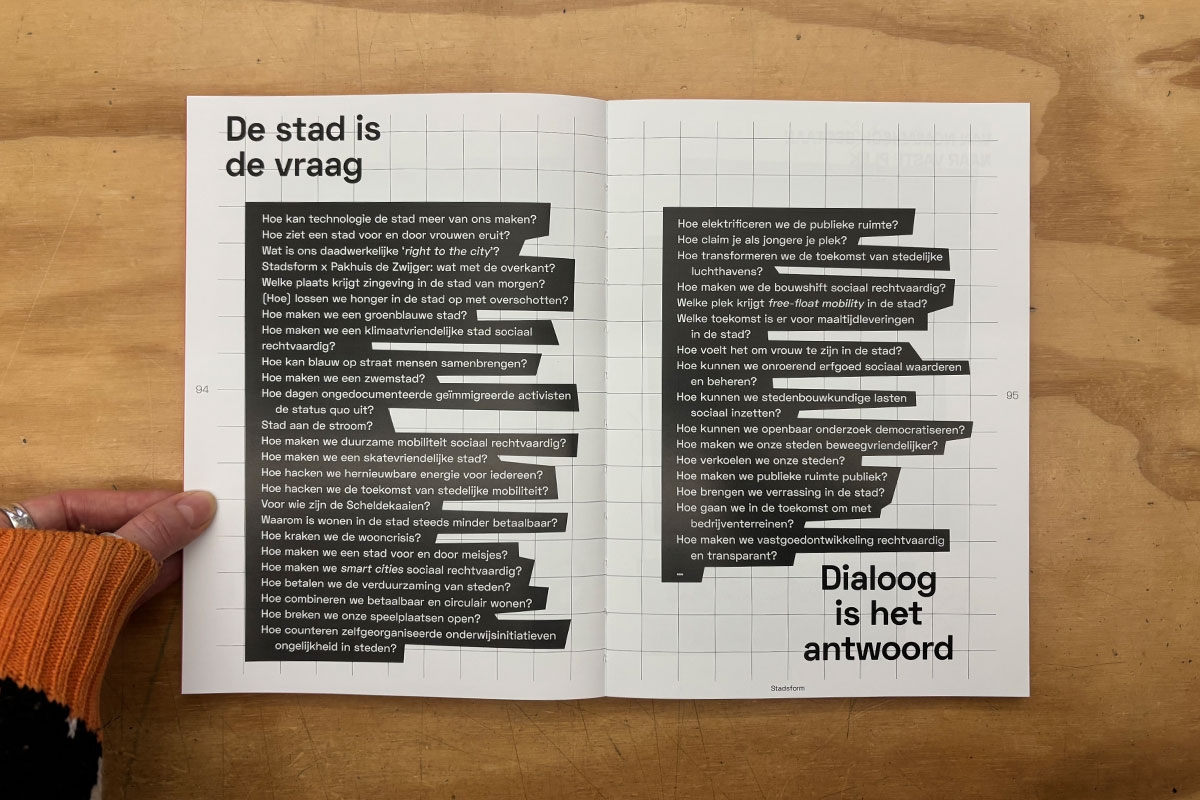 De stad is
de vraag
Hoe kan technologie de stad meer van ons maken?
Hoe ziet een stad voor en door vrouwen eruit?
Wat is ons daadwerkelijke ‘right to the city’?
Stadsform x Pakhuis de Zwijger: wat met de overkant?
Welke plaats krijgt zingeving in de stad van morgen?
(Hoe) lossen we honger in de stad op met overschotten?
Hoe maken we een groenblauwe stad?
Hoe maken we een klimaatvriendelijke stad sociaal
rechtvaardig?
Hoe kan blauw op straat mensen samenbrengen?
Hoe maken we een zwemstad?
Hoe dagen ongedocumenteerde geïmmigreerde activisten
de status quo uit?
Stad aan de stroom?
Hoe maken we duurzame mobiliteit sociaal rechtvaardig?
Hoe maken we een skatevriendelijke stad?
Hoe hacken we hernieuwbare energie voor iedereen?
Hoe hacken we de toekomst van stedelijke mobiliteit?
Voor wie zijn de Scheldekaaien?
Waarom is wonen in de stad steeds minder betaalbaar?
Hoe kraken we de wooncrisis?
Hoe maken we een stad voor en door meisjes?
Hoe maken we smart cities sociaal rechtvaardig?
Hoe betalen we de verduurzaming van steden?
Hoe combineren we betaalbaar en circulair wonen?
Hoe breken we onze speelplaatsen open?
Hoe counteren zelfgeorganiseerde onderwijsinitiatieven
ongelijkheid in steden?
94
Hoe elektrificeren we de publieke ruimte?
Hoe claim je als jongere je plek?
Hoe transformeren we de toekomst van stedelijke
luchthavens?
Hoe maken we de bouwshift sociaal rechtvaardig?
Welke plek krijgt free-float mobility in de stad?
Welke toekomst is er voor maaltijdleveringen
in de stad?
Hoe voelt het om vrouw te zijn in de stad?
Hoe kunnen we onroerend erfgoed sociaal waarderen
en beheren?
Hoe kunnen we stedenbouwkundige lasten
sociaal inzetten?
Hoe kunnen we openbaar onderzoek democratiseren?
Hoe maken we onze steden beweegvriendelijker?
Hoe verkoelen we onze steden?
Hoe maken we publieke ruimte publiek?
Hoe brengen we verrassing in de stad?
Hoe gaan we in de toekomst om met
bedrijventerreinen?
Hoe maken we vastgoedontwikkeling rechtvaardig
en transparant?
...
95
Dialoog
is het
antwoord
Stadsform